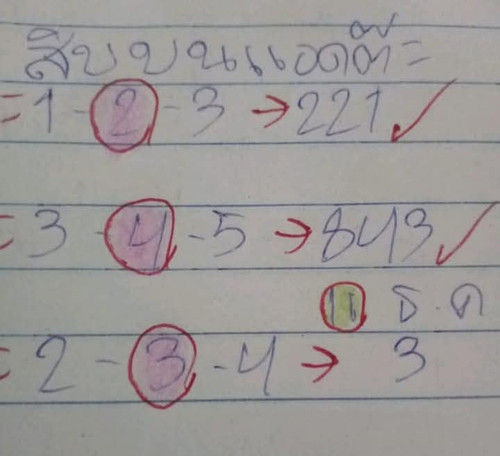 สิบบนแอดต๊ะ
= 1 - 2 - 3 → 221 ✓
= 3 - 4 - 5 → 843 ✓
11 ธ.ค
= 2 - 3 - 4 → 3